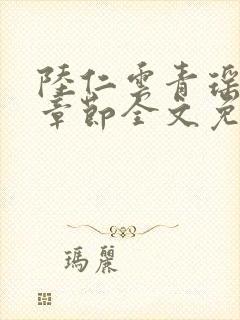 陸仁雲青瑶
章節全文免
瑪麗